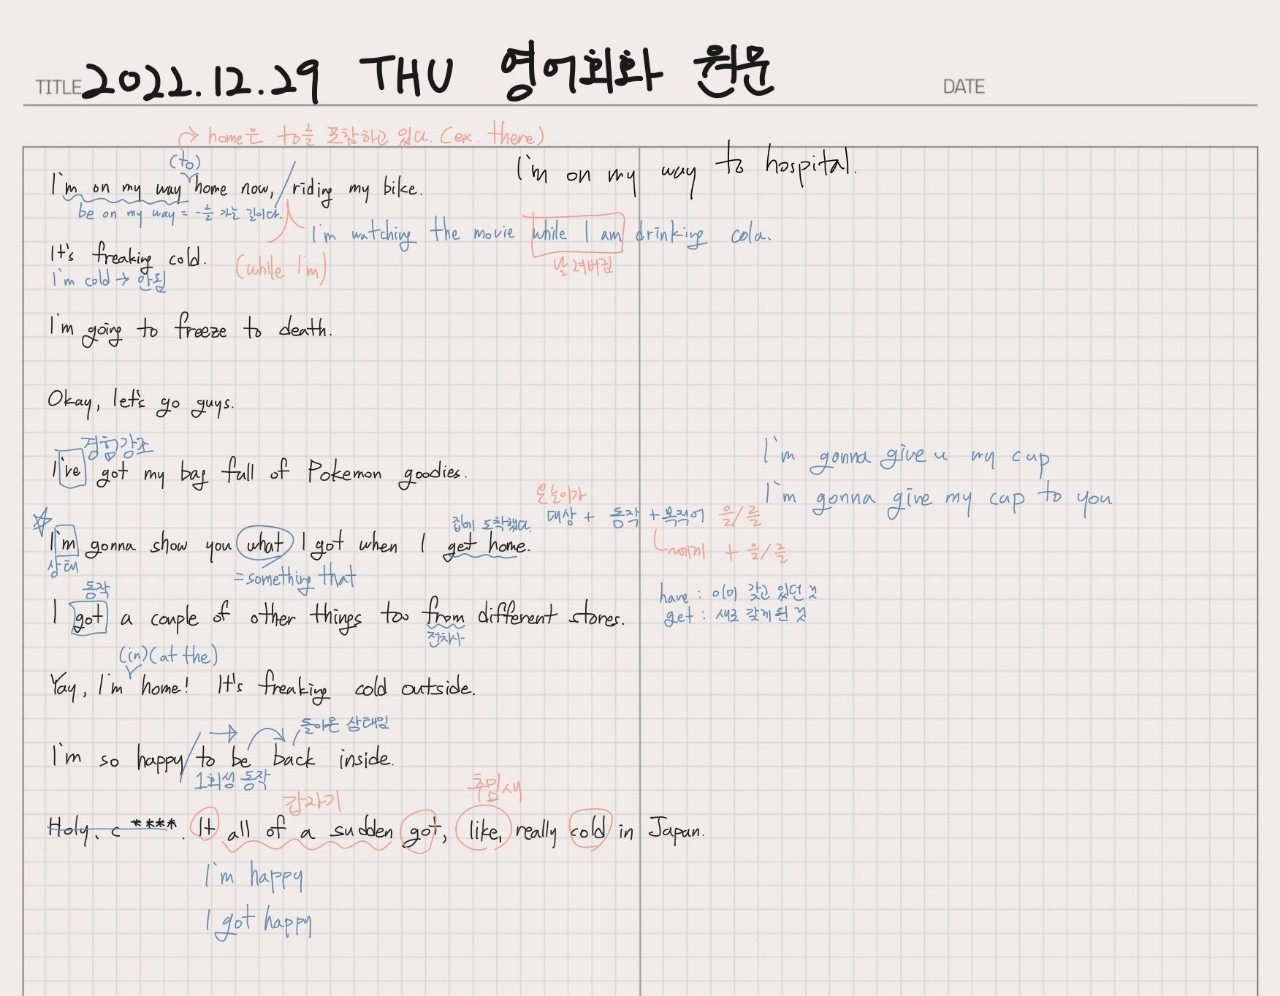 TITLE 2022.12.29 THU 영어회화 원문 DATE
→ home은 to를 포함하고 있다. (ex. there)
(to)
I'm on my way home now, / riding my bike.
I'm on my way to hospital.
be on my way = -을 가는 길이다.
I'm watching the movie while I am drinking cola.
It's freaking cold.
(while I'm)
날려버림
I'm cold → 안됨
I'm going to freeze to death.
Okay, let's go guys.
경험강조
I've got my bag full of Pokemon goodies.
I'm gonna give u my cup
I'm gonna give my cup to you
집에 도착했다.
대상 + 동작 + 목적어 을/를
I'm gonna show you what I got when I get home.
~에게 + 을/를
상태
=something that
동작
have : 이미 갖고 있던 것
get : 새로 갖게된 것
I got a couple of other things too from different stores.
전치사
(in)(at the)
Yay, I'm home! It's freaking cold outside.
→ 돌아온 상태임
I'm so happy / to be back inside.
1회성 동작
갑자기 추임새
Holy, c ****. It all of a sudden got, like, really cold in Japan.
I'm happy
I got happy